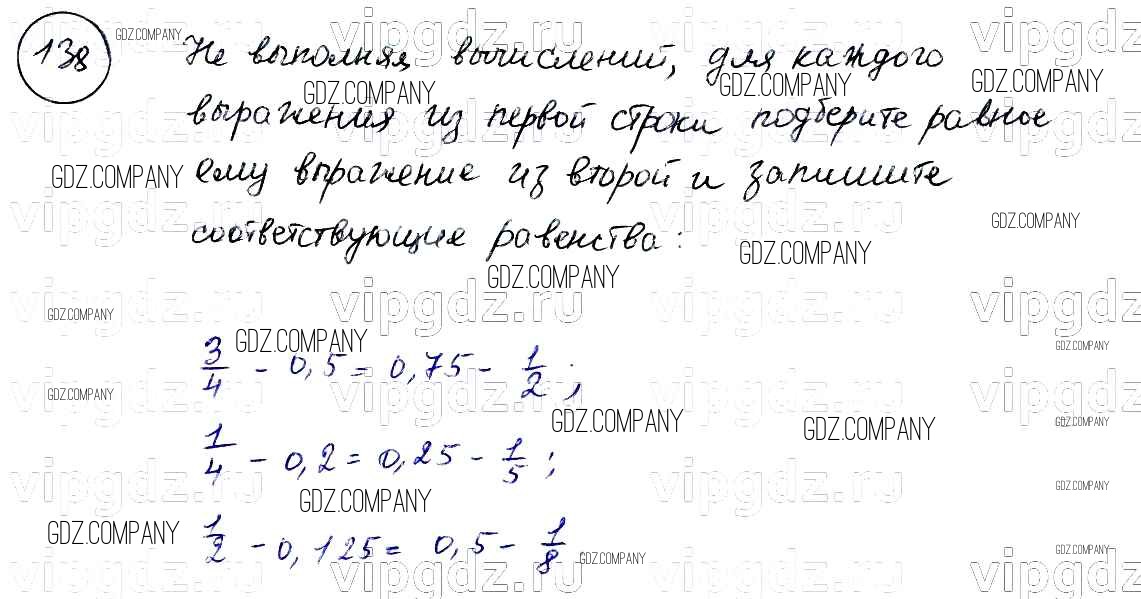 138
Не выполняя вычислений, для каждого
выражения из первой строки подберите равное
ему выражение из второй и запишите
соответствующие равенства:
3/4 - 0,5 = 0,75 - 1/2;
1/4 - 0,2 = 0,25 - 1/5;
1/2 - 0,125 = 0,5 - 1/8
GDZ.COMPANY
vipgdz.ru